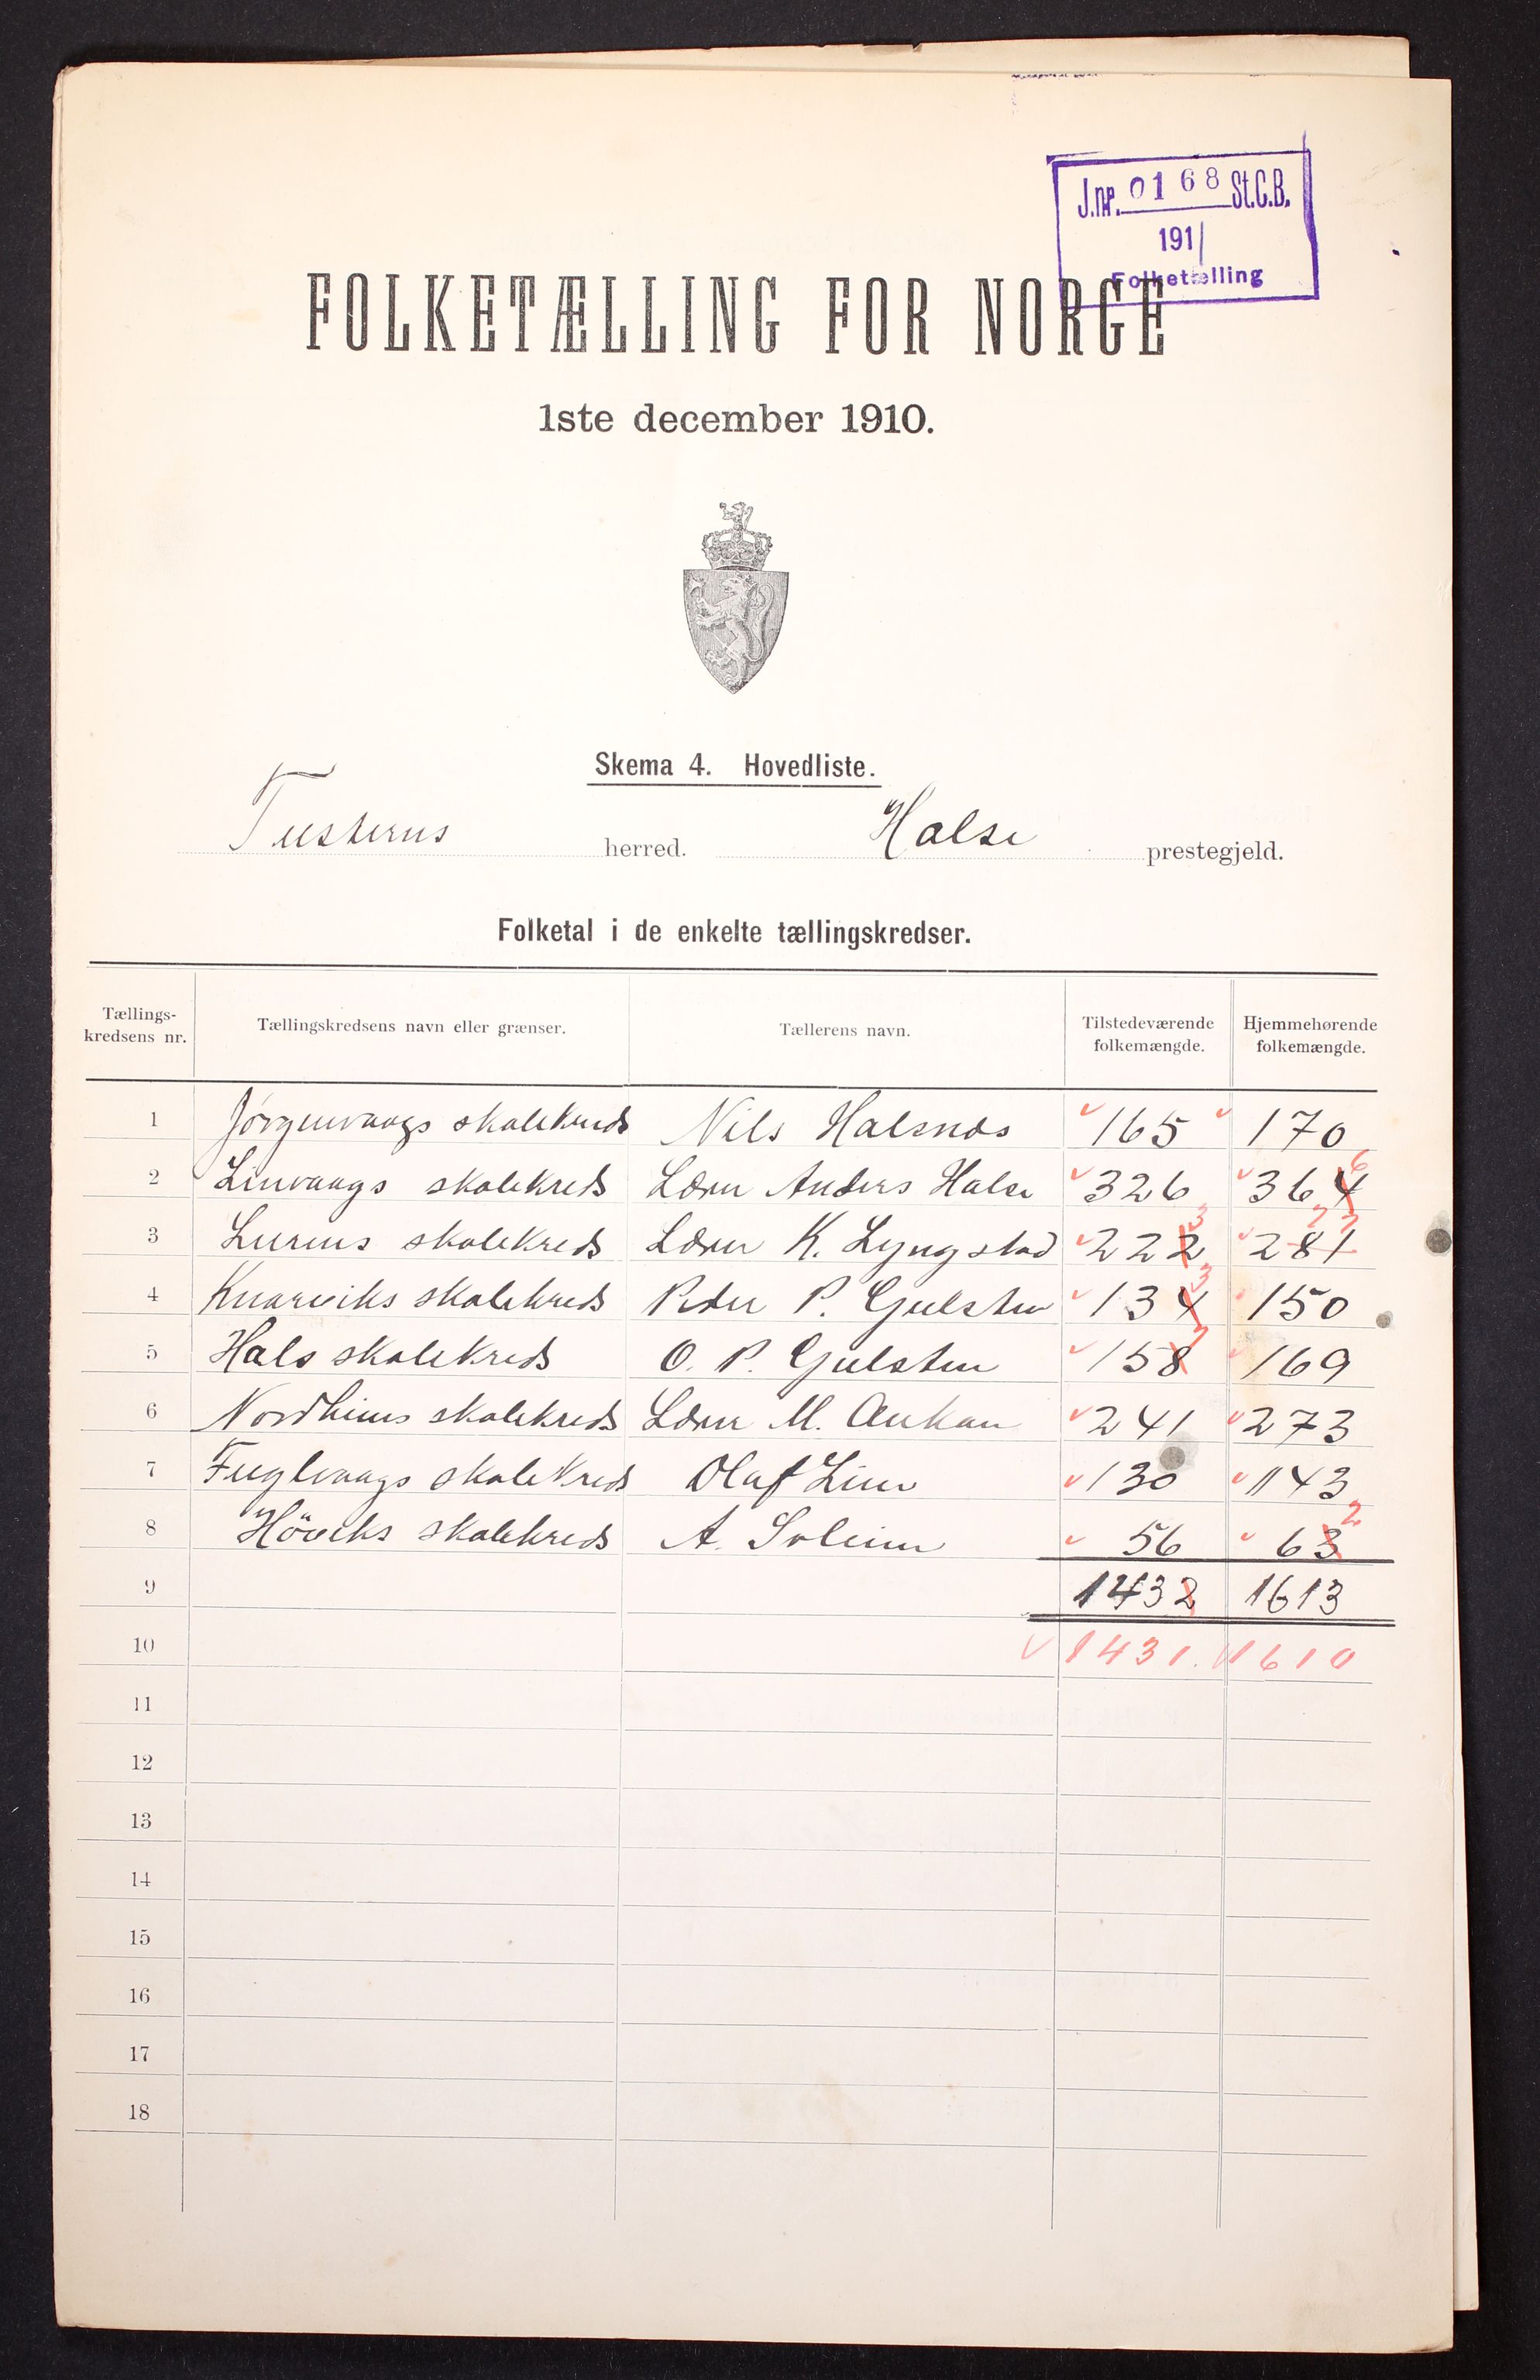 J.nr. 0168 St.C.B.
1911
Folketælling
FOLKETÆLLING FOR NORGE
1ste december 1910.
Skema 4. Hovedliste.
Tusterens herred. Halse prestegjeld.
Folketal i de enkelte tællingskredser.
Tællings-kredsens nr. Tællingskredsens navn eller grænser. Tællerens navn. Tilstedeværende folkemængde. Hjemmehørende folkemængde.
1 Jørgenvaags skolekreds Nils Halsnæs 165 170
2 Linvaags skolekreds Lærer Anders Halse 326 364 6
3 Lurens skolekreds Lærer K. Lyngstad 222 3 281 7 3
4 Knarviks skolekreds Peder P. Gulsten 134 3 150
5 Hals skolekreds O. P. Gulsten 158 7 169
6 Nordheims skolekreds Lærer M. Aukan 241 273
7 Fuglvaags skolekreds Olaf Lien 130 143
8 Höviks skolekreds A. Soleim 56 63 2
9 1432 1613
10 1431. 1610
11
12
13
14
15
16
17
18